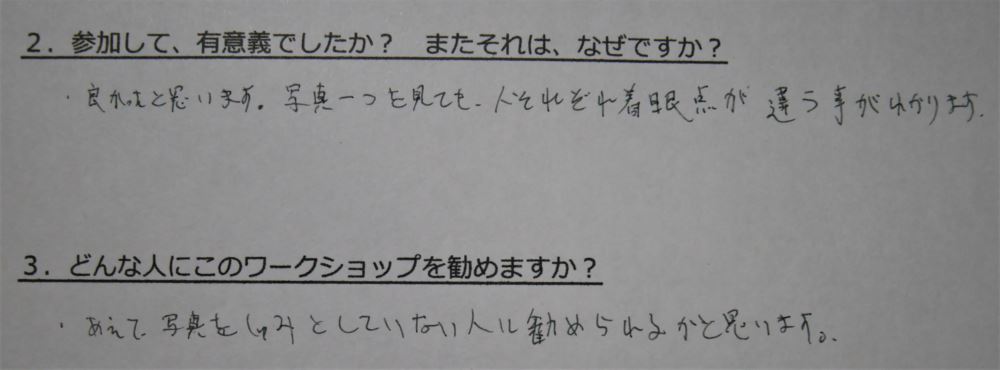 ２．参加して、有意義でしたか？　またそれは、なぜですか？
・良かったと思います。写真一つを見ても、人それぞれ着眼点が違う事がわかります。
３．どんな人にこのワークショップを勧めますか？
・あえて、写真をしゅみとしていない人に勧められるかと思います。